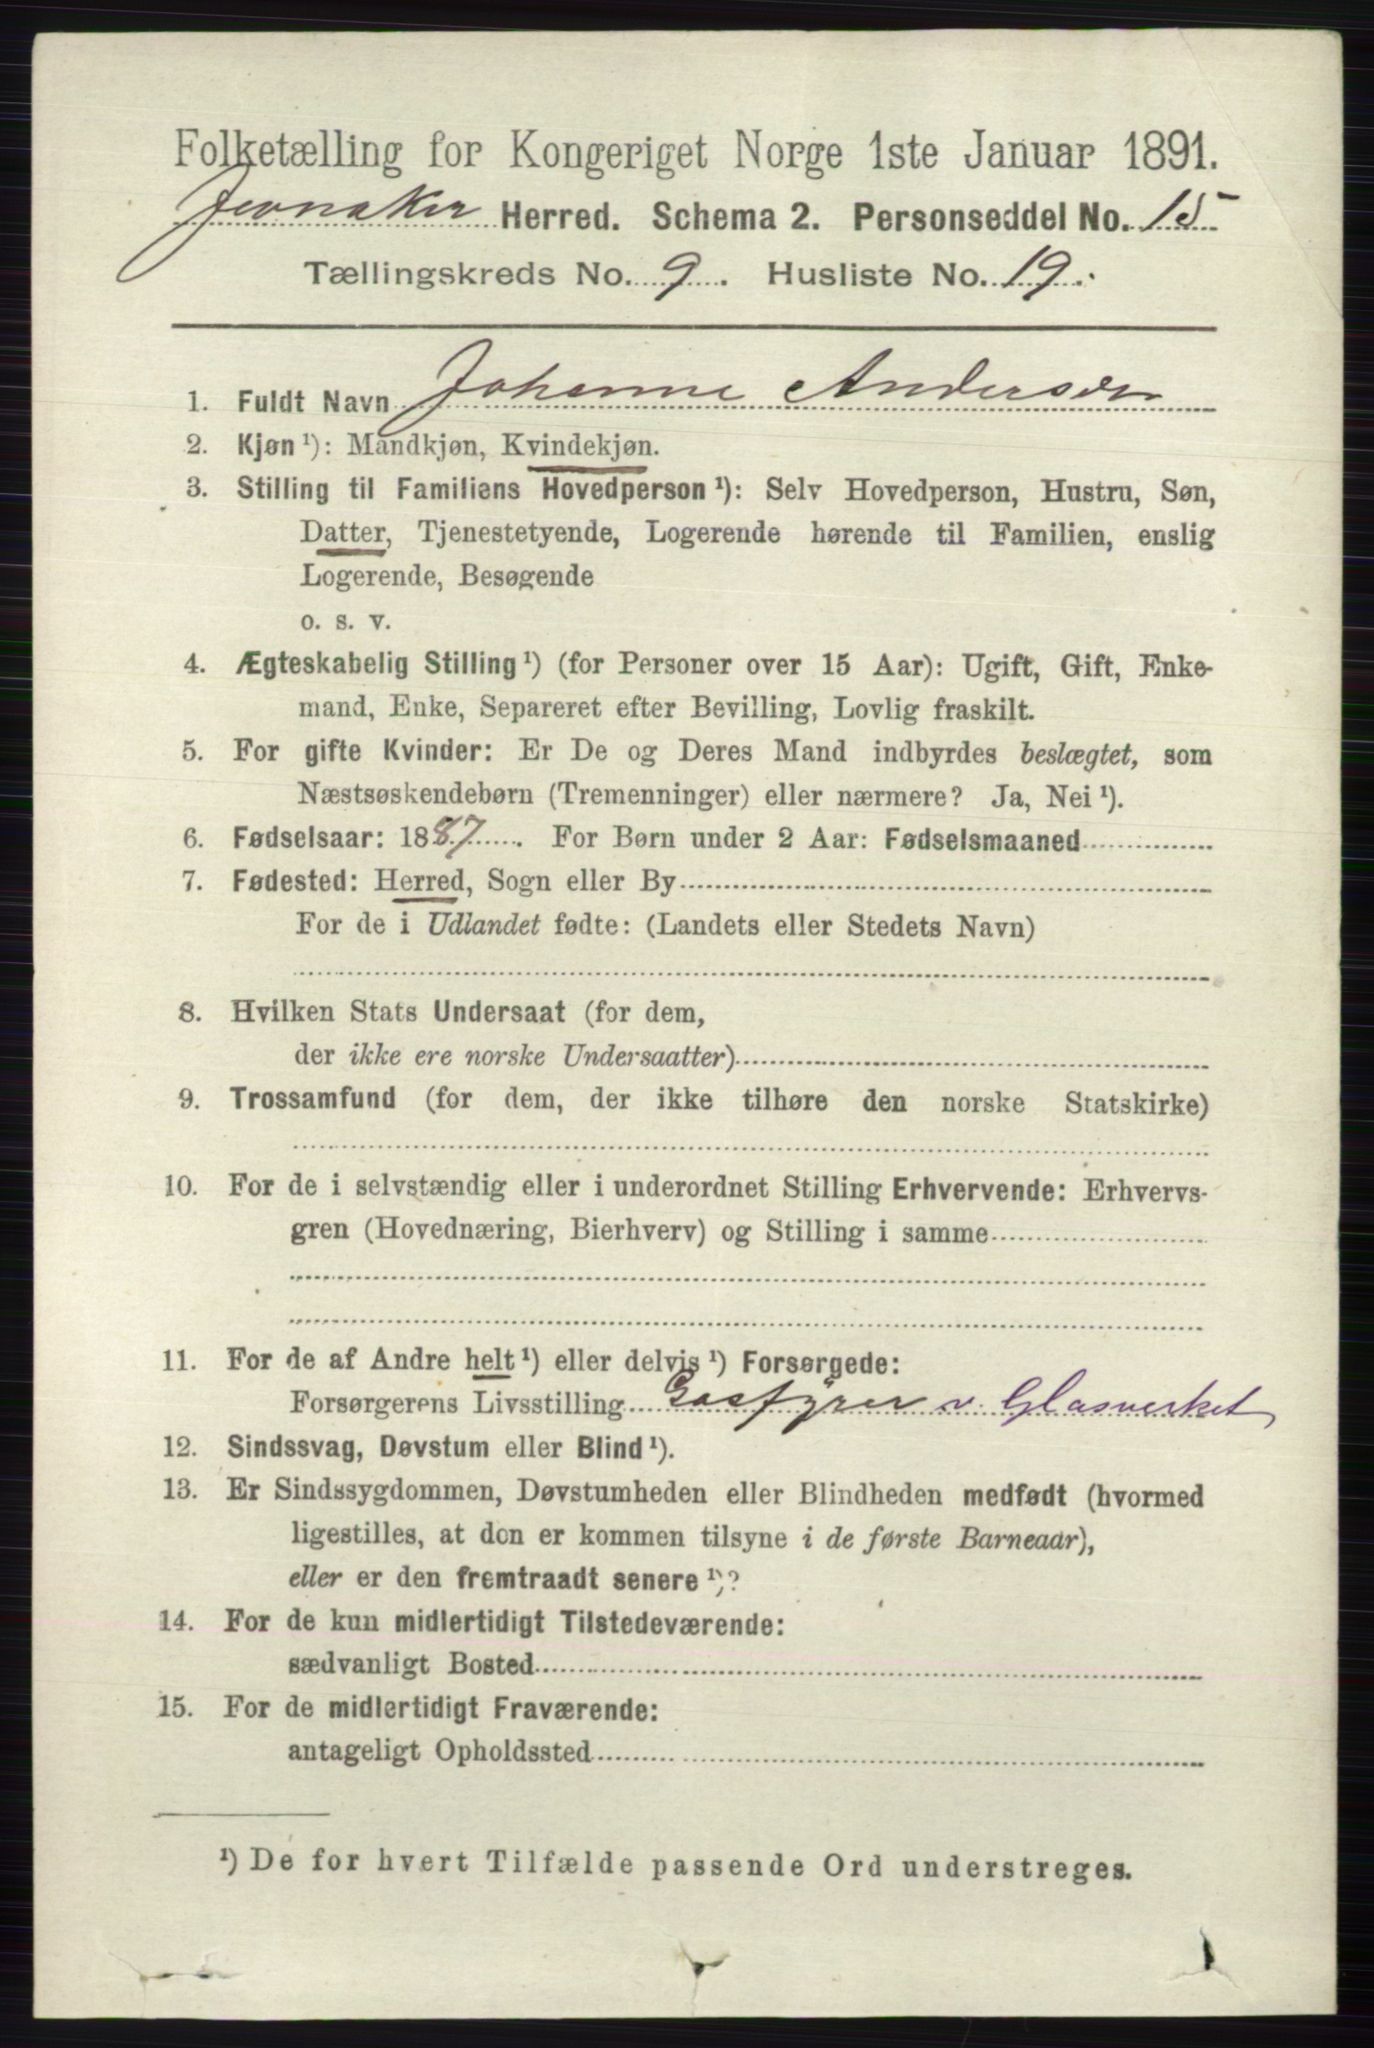 Folketælling for Kongeriget Norge 1ste Januar 1891.
Jevnaker Herred. Schema 2. Personseddel No. 15
Tællingskreds No. 9. Husliste No. 19.
1. Fuldt Navn Johanne Andersen
2. Kjøn ¹): Mandkjøn, Kvindekjøn.
3. Stilling til Familiens Hovedperson ¹): Selv Hovedperson, Hustru, Søn,
Datter, Tjenestetyende, Logerende hørende til Familien, enslig
Logerende, Besøgende
o. s. v.
4. Ægteskabelig Stilling ¹) (for Personer over 15 Aar): Ugift, Gift, Enke-
mand, Enke, Separeret efter Bevilling, Lovlig fraskilt.
5. For gifte Kvinder: Er De og Deres Mand indbyrdes beslægtet, som
Næstsøskendebørn (Tremenninger) eller nærmere? Ja, Nei ¹).
6. Fødselsaar: 1887. For Børn under 2 Aar: Fødselsmaaned
7. Fødested: Herred, Sogn eller By
For de i Udlandet fødte: (Landets eller Stedets Navn)
8. Hvilken Stats Undersaat (for dem,
der ikke ere norske Undersaatter)
9. Trossamfund (for dem, der ikke tilhøre den norske Statskirke)
10. For de i selvstændig eller i underordnet Stilling Erhvervende: Erhvervs-
gren (Hovednæring, Bierhverv) og Stilling i samme
11. For de af Andre helt ¹) eller delvis ¹) Forsørgede:
Forsørgerens Livsstilling Gasfyrer v. Glasverket
12. Sindssvag, Døvstum eller Blind ¹).
13. Er Sindssygdommen, Døvstumheden eller Blindheden medfødt (hvormed
ligestilles, at den er kommen tilsyne i de første Barneaar),
eller er den fremtraadt senere ¹)?
14. For de kun midlertidigt Tilstedeværende:
sædvanligt Bosted
15. For de midlertidigt Fraværende:
antageligt Opholdssted
¹) De for hvert Tilfælde passende Ord understreges.